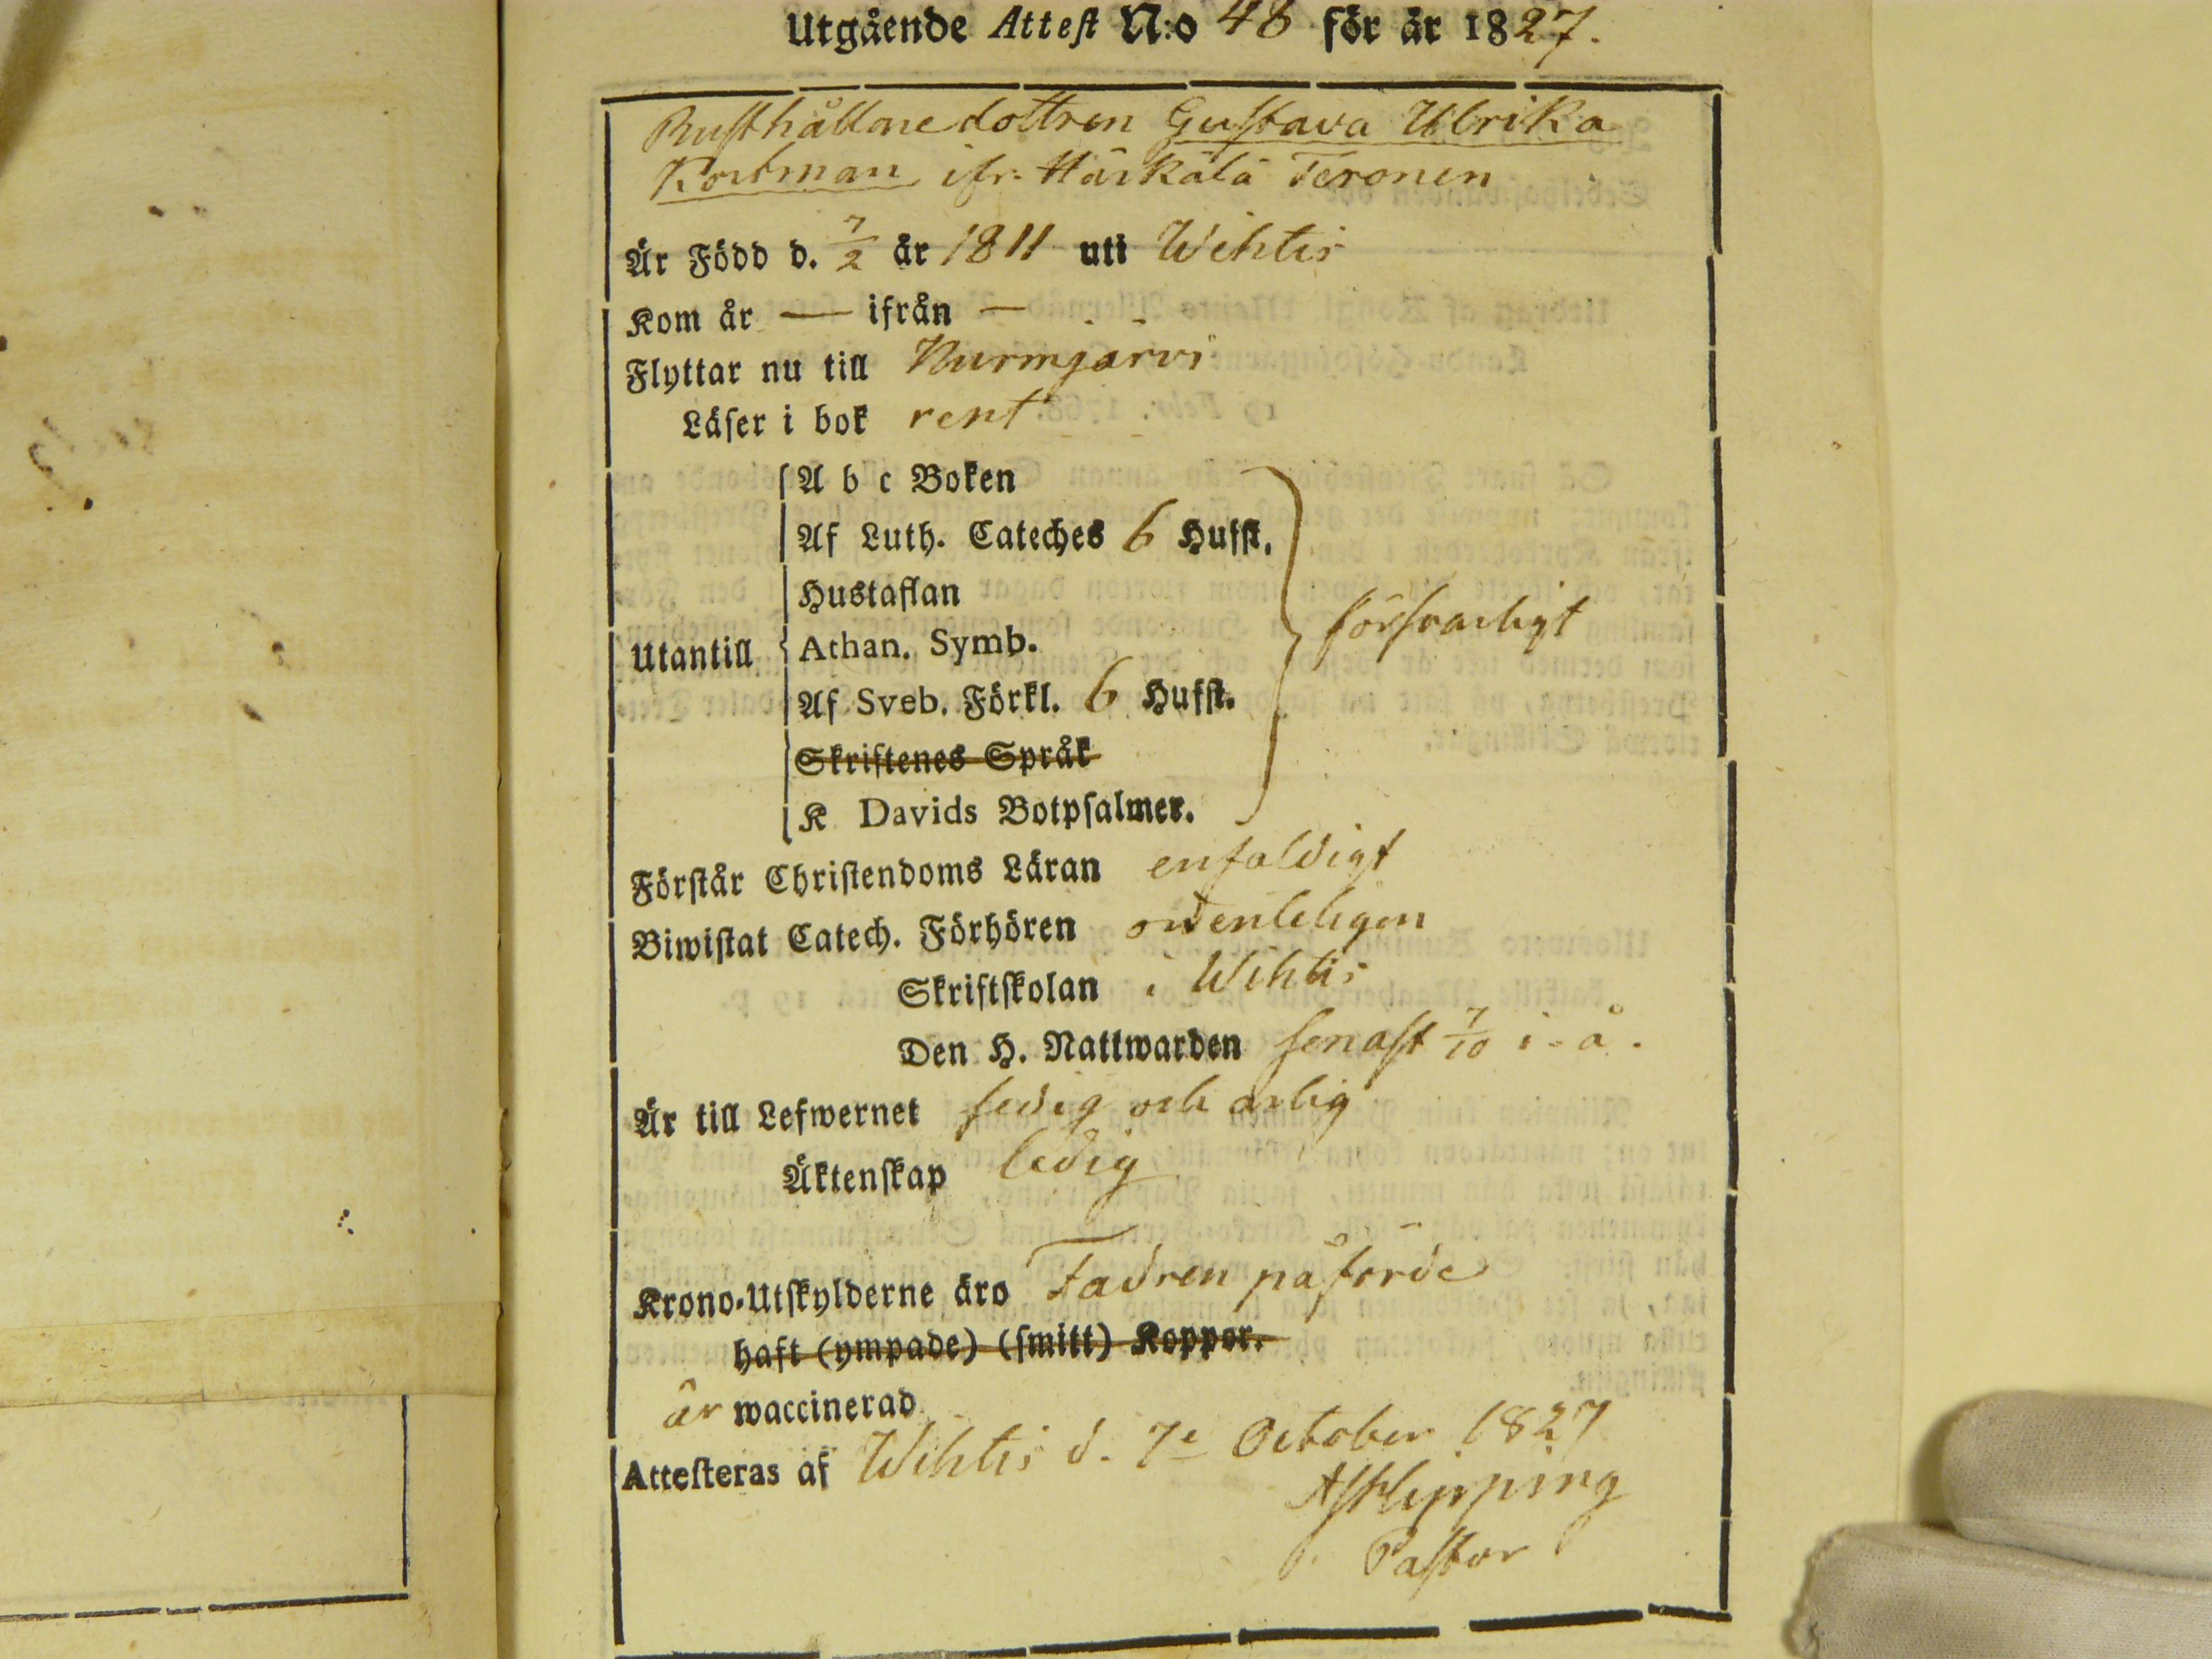 Utgående Attest N:o 48 för år 1827.
Rusthållaredottren Gustava Ulrika
Kortman ifr. Härkälä Teronen
Är Född d. 7/2 år 1811 uti Wihtis
Kom år — ifrån —
Flyttar nu till Nurmjärvi
Läser i bok rent
A b c Boken
Af Luth. Cateches 6 Hufst.
Hustaflan
försvarligt
Utantill Athan. Symb.
Af Sveb. Förkl. 6 Hufst.
Skriftenes Språk
K Davids Botpsalmer.
Förstår Christendoms Läran enfaldigt
Biwistat Catech. Förhören ordenteligen
Skriftskolan i Wihtis
Den H. Nattwarden senast 7/10 i. å.
Är till Lefwernet sedig och ärlig
Äktenskap ledig
Krono-Utskylderne äro Fadren påförde
haft (ympade) (smitt) Koppor.
är waccinerad
Attesteras af Wihtis d. 7e October 1827
Pastor